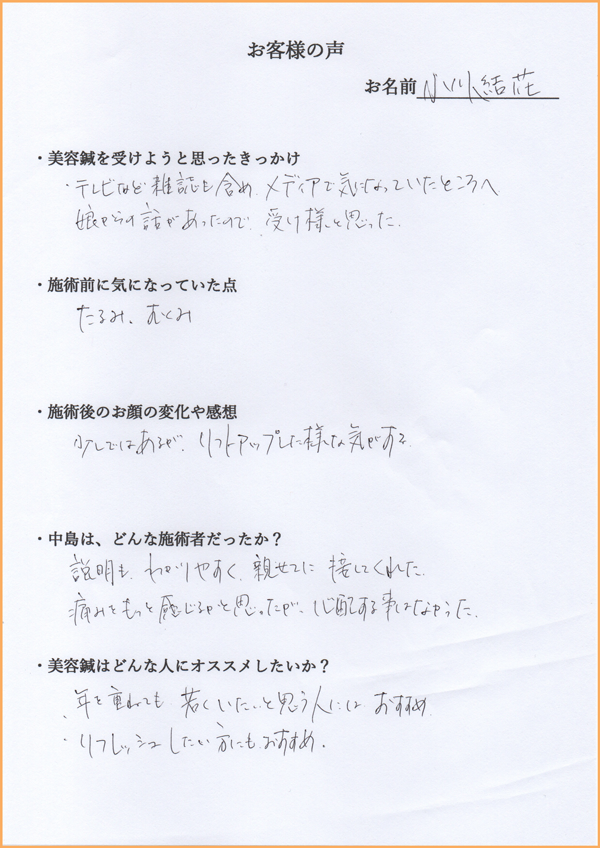 お客様の声
お名前 小川結花
・美容鍼を受けようと思ったきっかけ
・テレビなど雑誌も含め、メディアで気になっていたところへ
娘からの話があったので、受け様と思った。
・施術前に気になっていた点
たるみ、むくみ
・施術後のお顔の変化や感想
少しではあるが、リフトアップした様な気がする
・中島は、どんな施術者だったか？
説明も、わかりやすく、親せつに接してくれた。
痛みをもっと感じるかと思ったが、心配する事はなかった。
・美容鍼はどんな人にオススメしたいか？
・年を重ねても若くいたいと思う人には、おすすめ
・リフレッシュしたい方にもおすすめ。